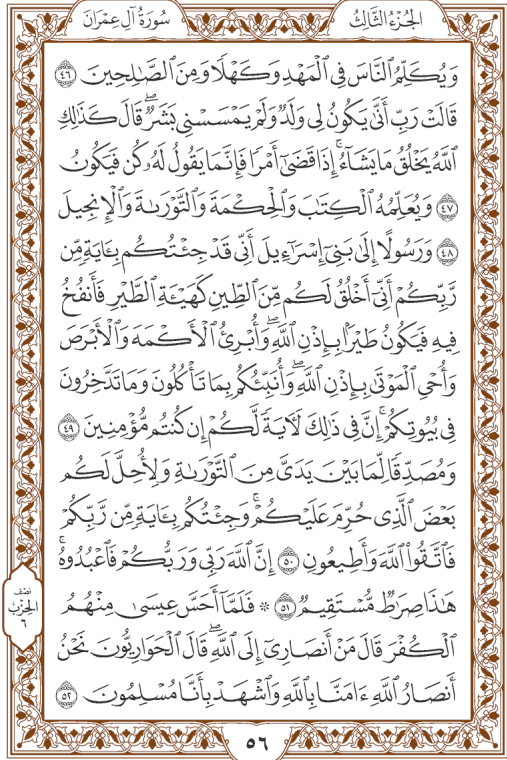 الجُزْءُ الثَّالِثُ
سُورَةُ آلِ عِمْرَانَ
وَيُكَلِّمُ ٱلنَّاسَ فِي ٱلْمَهْدِ وَكَهْلًا وَمِنَ ٱلصَّٰلِحِينَ ٤٦
قَالَتْ رَبِّ أَنَّىٰ يَكُونُ لِي وَلَدٌ وَلَمْ يَمْسَسْنِي بَشَرٌۖ قَالَ كَذَٰلِكِ
ٱللَّهُ يَخْلُقُ مَا يَشَآءُۚ إِذَا قَضَىٰٓ أَمْرًا فَإِنَّمَا يَقُولُ لَهُۥ كُن فَيَكُونُ
٤٧ وَيُعَلِّمُهُ ٱلْكِتَٰبَ وَٱلْحِكْمَةَ وَٱلتَّوْرَىٰةَ وَٱلْإِنجِيلَ
٤٨ وَرَسُولًا إِلَىٰ بَنِيٓ إِسْرَٰٓءِيلَ أَنِّي قَدْ جِئْتُكُم بِـَٔايَةٍ مِّن
رَّبِّكُمْ أَنِّيٓ أَخْلُقُ لَكُم مِّنَ ٱلطِّينِ كَهَيْـَٔةِ ٱلطَّيْرِ فَأَنفُخُ
فِيهِ فَيَكُونُ طَيْرًۢا بِإِذْنِ ٱللَّهِۖ وَأُبْرِئُ ٱلْأَكْمَهَ وَٱلْأَبْرَصَ
وَأُحْيِ ٱلْمَوْتَىٰ بِإِذْنِ ٱللَّهِۖ وَأُنَبِّئُكُم بِمَا تَأْكُلُونَ وَمَا تَدَّخِرُونَ
فِي بُيُوتِكُمْۚ إِنَّ فِي ذَٰلِكَ لَـَٔايَةً لَّكُمْ إِن كُنتُم مُّؤْمِنِينَ ٤٩
وَمُصَدِّقًا لِّمَا بَيْنَ يَدَيَّ مِنَ ٱلتَّوْرَىٰةِ وَلِأُحِلَّ لَكُم
بَعْضَ ٱلَّذِي حُرِّمَ عَلَيْكُمْۚ وَجِئْتُكُم بِـَٔايَةٍ مِّن رَّبِّكُمْ
فَٱتَّقُوا۟ ٱللَّهَ وَأَطِيعُونِ ٥٠ إِنَّ ٱللَّهَ رَبِّي وَرَبُّكُمْ فَٱعْبُدُوهُۚ
هَٰذَا صِرَٰطٌ مُّسْتَقِيمٌ ٥١ ۞ فَلَمَّآ أَحَسَّ عِيسَىٰ مِنْهُمُ
ٱلْكُفْرَ قَالَ مَنْ أَنصَارِيٓ إِلَى ٱللَّهِۖ قَالَ ٱلْحَوَارِيُّونَ نَحْنُ
أَنصَارُ ٱللَّهِ ءَامَنَّا بِٱللَّهِ وَٱشْهَدْ بِأَنَّا مُسْلِمُونَ ٥٢
نصف
الحزب
٦
٥٦